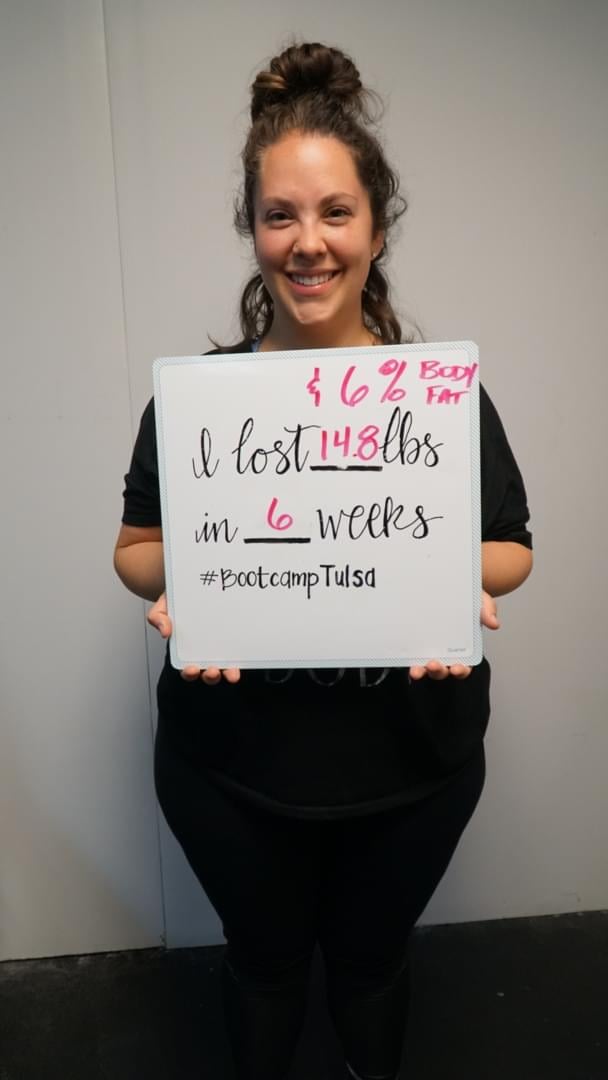 & 6% BODY
FAT
I lost 14.8 lbs
in 6 weeks
#BootcampTulsa
Quartet